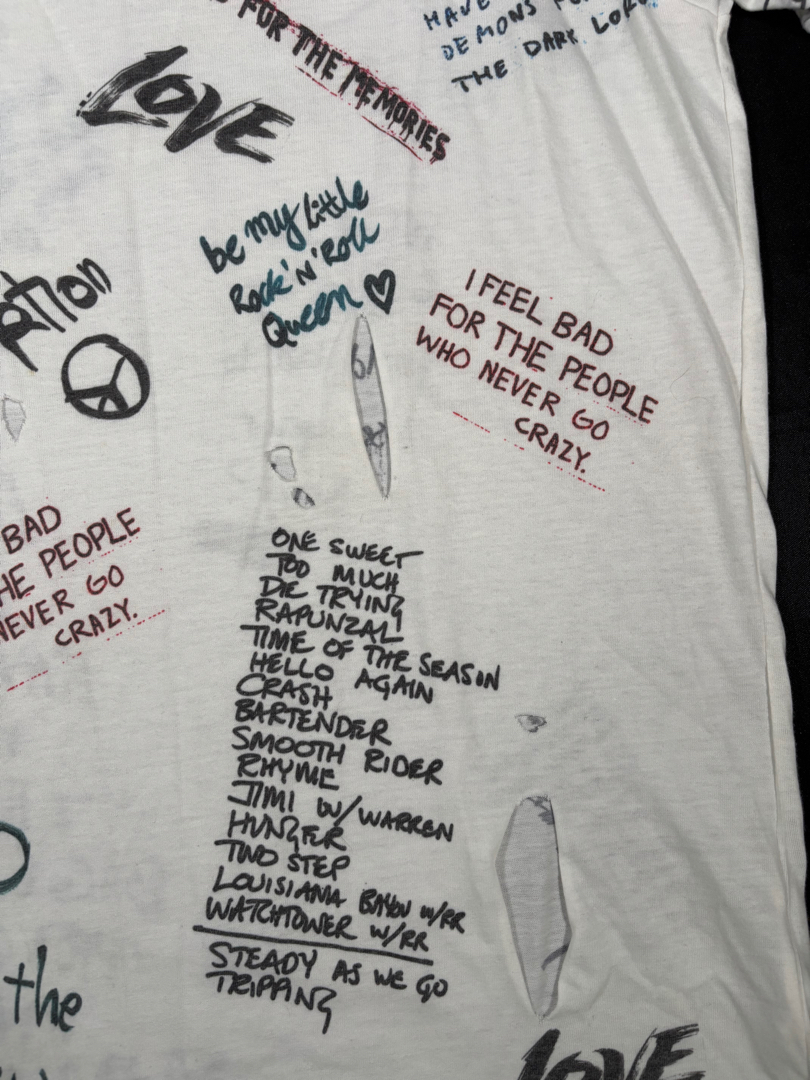 FOR THE MEMORIES
HAVE
DEMONS
THE DARK LORD
LOVE
be my little
Rock 'N' Roll
Queen
I FEEL BAD
FOR THE PEOPLE
WHO NEVER GO
CRAZY.
BAD
HE PEOPLE
NEVER GO
CRAZY.
ONE SWEET
TOO MUCH
DIE TRYING
RAPUNZAL
TIME OF THE SEASON
HELLO AGAIN
CRASH
BARTENDER
SMOOTH RIDER
RHYME
JIMI W/WARREN
HUNGER
TWO STEP
LOUISIANA BAYOU W/RR
WATCHTOWER W/RR
STEADY AS WE GO
TRIPPING
the
LOVE